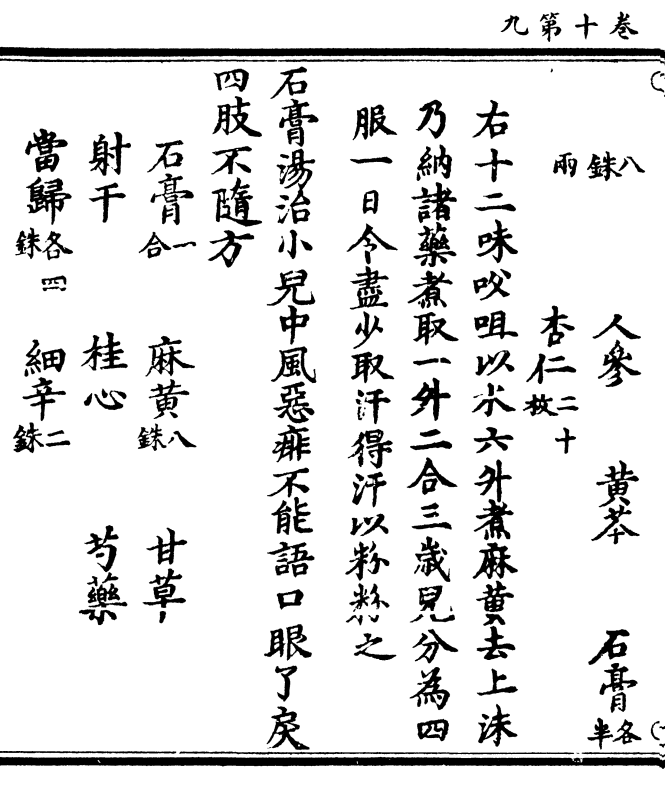 卷十第九
八銖 人參 黃芩 石膏各半
兩 杏仁二十枚
右十二味㕮咀以水六升煮麻黃去上沫
乃納諸藥煮取一升二合三歲兒分為四
服一日令盡少取汗得汗以粉粉之
石膏湯治小兒中風惡痱不能語口眼了戾
四肢不隨方
石膏一合 麻黃八銖 甘草
射干 桂心 芍藥
當歸各四銖 細辛二銖